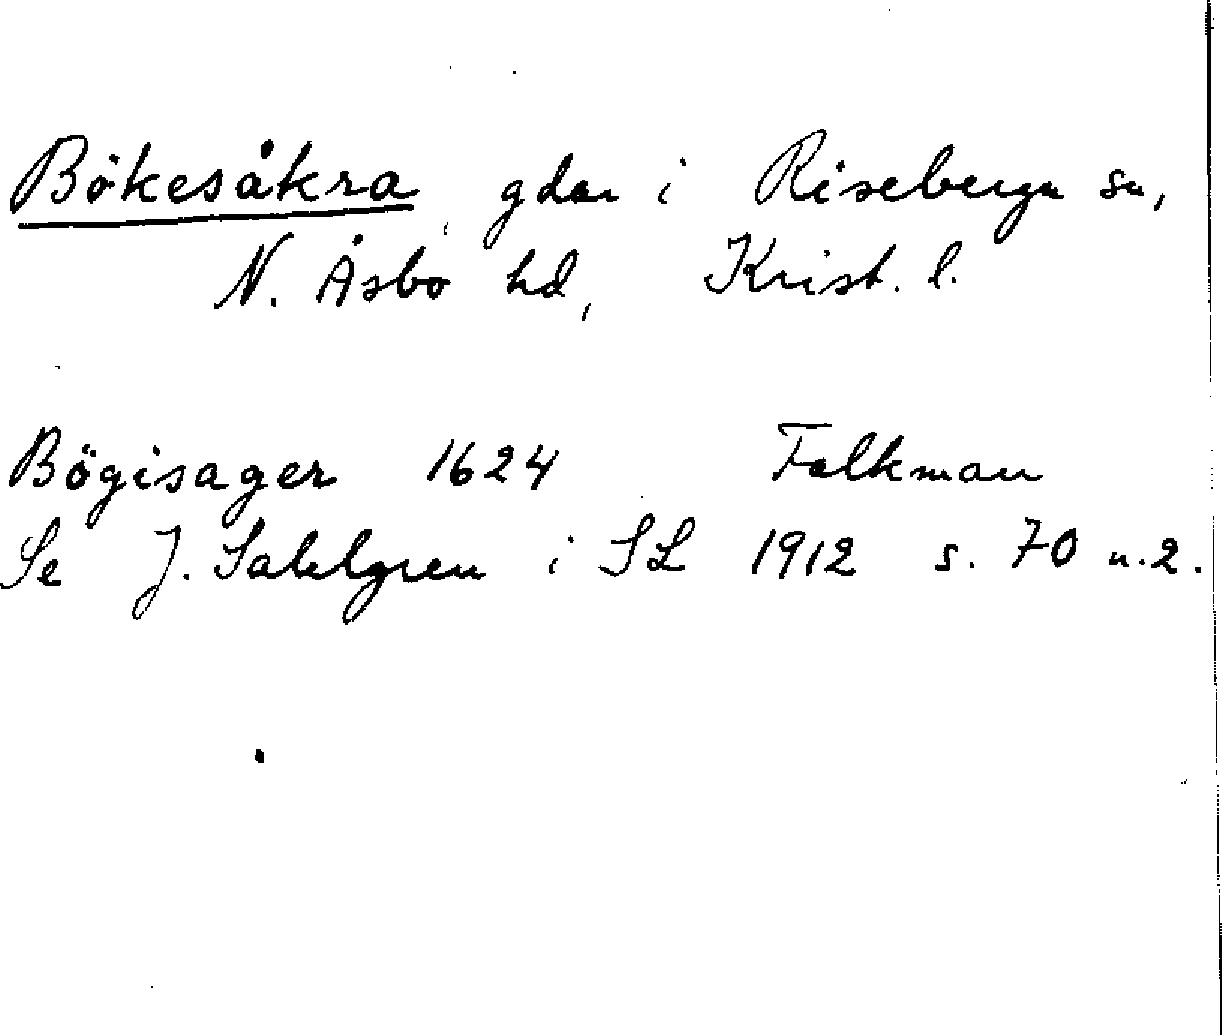 Bökesåkra, gdar i Riseberga sn,
N. Åsbo hd, Krist. l.
Bögisager 1624 Falkman
Se J. Sahlgren i SL 1912 s. 70 n.2.